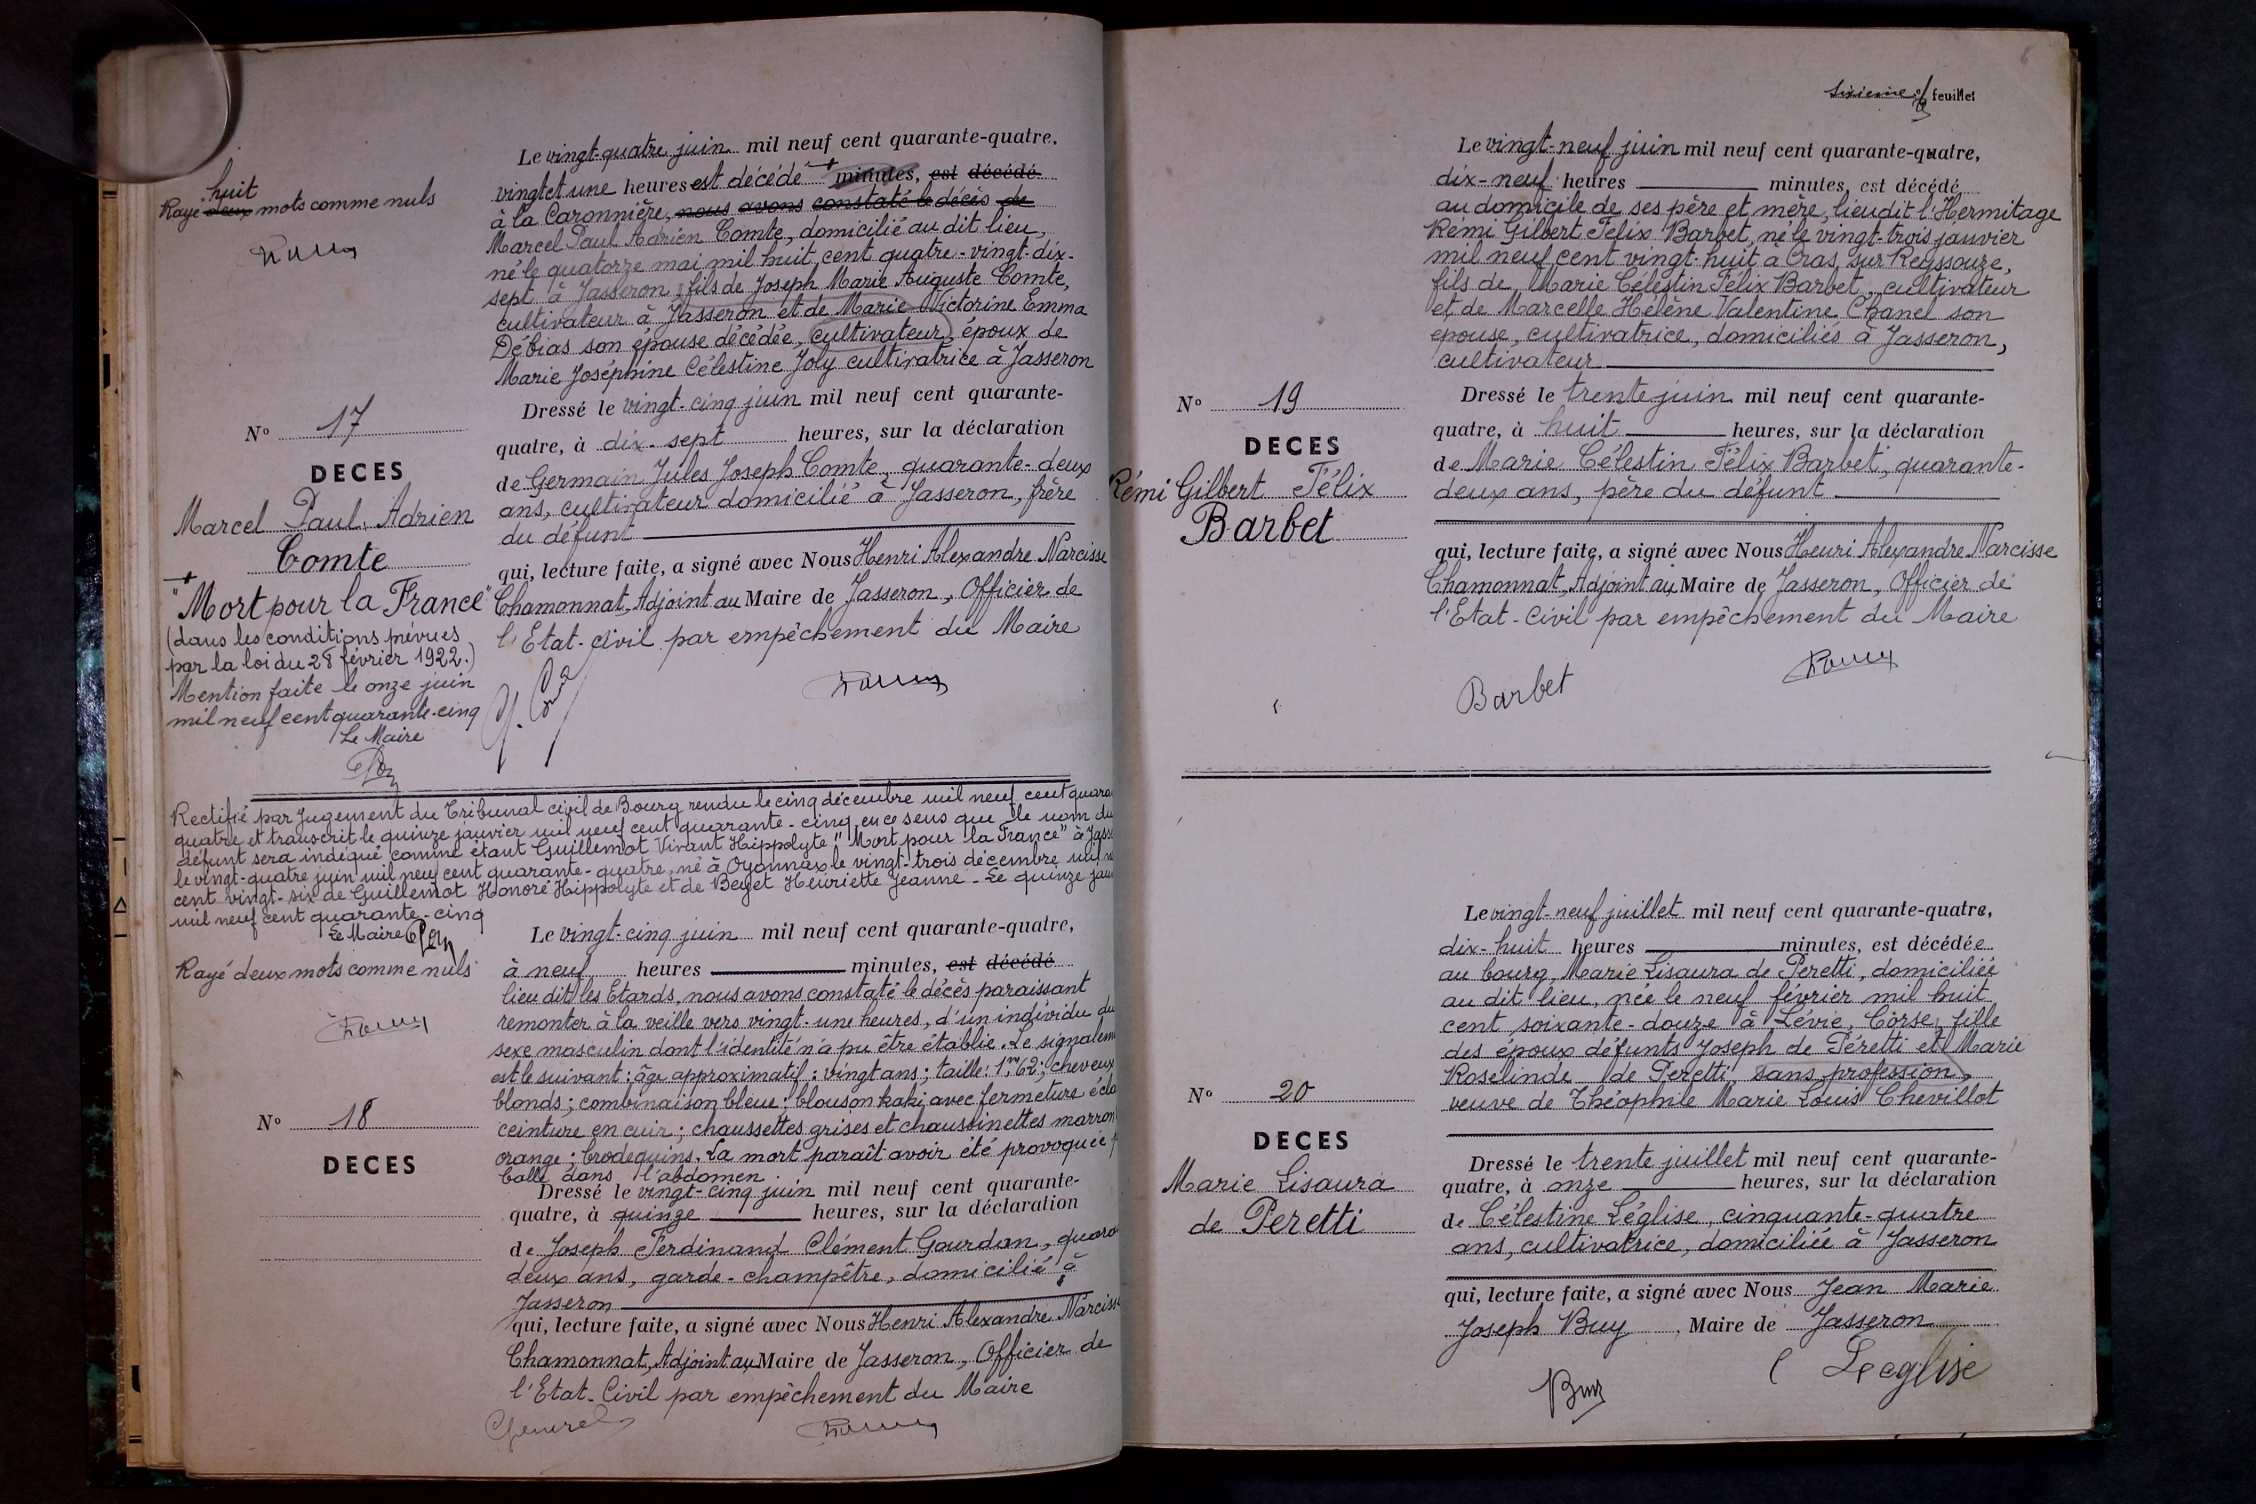 Le vingt-quatre juin mil neuf cent quarante-quatre,
vingt et une heures est décédé minutes, est décédé
à la Caronnière, nous avons constaté le décès de
Marcel Paul Adrien Comte, domicilié au dit lieu,
né le quatorze mai mil huit cent quatre-vingt-dix-
sept à Jasseron, fils de Joseph Marie Auguste Comte,
cultivateur à Jasseron et de Marie Victorine Emma
Débias son épouse décédée, cultivateur, époux de
Marie Joséphine Célestine Joly cultivatrice à Jasseron
huit
Rayé deux mots comme nuls
N° 17
DECES
Marcel Paul Adrien
Comte
"Mort pour la France"
(dans les conditions prévues
par la loi du 28 février 1922.)
Mention faite le onze juin
mil neuf cent quarante-cinq
Le Maire
Dressé le vingt-cinq juin mil neuf cent quarante-
quatre, à dix-sept heures, sur la déclaration
de Germain Jules Joseph Comte, quarante-deux
ans, cultivateur domicilié à Jasseron, frère
du défunt
qui, lecture faite, a signé avec Nous Henri Alexandre Narcisse
Chamonnat, Adjoint au Maire de Jasseron, Officier de
l'Etat-Civil par empêchement du Maire
Rectifié par Jugement du Tribunal civil de Bourg rendu le cinq décembre mil neuf cent quara
quatre et transcrit le quinze janvier mil neuf cent quarante-cinq en ce sens que le nom du
défunt sera indiqué comme étant Guillemot Vivant Hippolyte "Mort pour la France" à Jass
le vingt-quatre juin mil neuf cent quarante-quatre, né à Oyonnax le vingt-trois décembre mil n
cent vingt-six de Guillemot Honoré Hippolyte et de Henriette Jeanne - Le quinze jan
mil neuf cent quarante-cinq
Le Maire
Rayé deux mots comme nuls
N° 18
DECES
Le vingt-cinq juin mil neuf cent quarante-quatre,
à neuf heures minutes, est décédé
lieu dit les Etards, nous avons constaté le décès paraissant
remonter à la veille vers vingt-une heures, d'un individu du
sexe masculin dont l'identité n'a pu être établie. Le signalem
est le suivant : âge approximatif : vingt ans ; taille : 1m,62 ; cheveux
blonds ; combinaison bleue ; blouson kaki avec fermeture écla
ceinture en cuir ; chaussettes grises et chaussinettes marron
orange ; brodequins. La mort paraît avoir été provoquée p
balle dans l'abdomen
Dressé le vingt-cinq juin mil neuf cent quarante-
quatre, à quinze heures, sur la déclaration
de Joseph Ferdinand Clément Gourdan, quara
deux ans, garde-champêtre, domicilié à
Jasseron
qui, lecture faite, a signé avec Nous Henri Alexandre Narcisse
Chamonnat, Adjoint au Maire de Jasseron, Officier de
l'Etat-Civil par empêchement du Maire
sixième feuillet
6
Le vingt-neuf juin mil neuf cent quarante-quatre,
dix-neuf heures minutes, est décédé
au domicile de ses père et mère, lieu dit l'Hermitage
Rémi Gilbert Félix Barbet, né le vingt-trois janvier
mil neuf cent vingt-huit à Cras sur Reyssouze,
fils de Marie Célestin Félix Barbet, cultivateur
et de Marcelle Hélène Valentine Chanel son
épouse, cultivatrice, domiciliés à Jasseron,
cultivateur
N° 19
DECES
Rémi Gilbert Félix
Barbet
Dressé le trente juin mil neuf cent quarante-
quatre, à huit heures, sur la déclaration
de Marie Célestin Félix Barbet, quarante-
deux ans, père du défunt
qui, lecture faite, a signé avec Nous Henri Alexandre Narcisse
Chamonnat, Adjoint au Maire de Jasseron, Officier de
l'Etat-Civil par empêchement du Maire
Barbet
Le vingt-neuf juillet mil neuf cent quarante-quatre,
dix-huit heures minutes, est décédée
au bourg, Marie Lisaura de Peretti, domiciliée
au dit lieu, née le neuf février mil huit
cent soixante-douze à Lévie, Corse, fille
des époux défunts Joseph de Péretti et Marie
Roselinde de Peretti, sans profession,
veuve de Théophile Marie Louis Chevillot
N° 20
DECES
Marie Lisaura
de Peretti
Dressé le trente juillet mil neuf cent quarante-
quatre, à onze heures, sur la déclaration
de Célestine Léglise, cinquante-quatre
ans, cultivatrice, domiciliée à Jasseron
qui, lecture faite, a signé avec Nous Jean Marie
Joseph Buy, Maire de Jasseron
Buy
Leglise